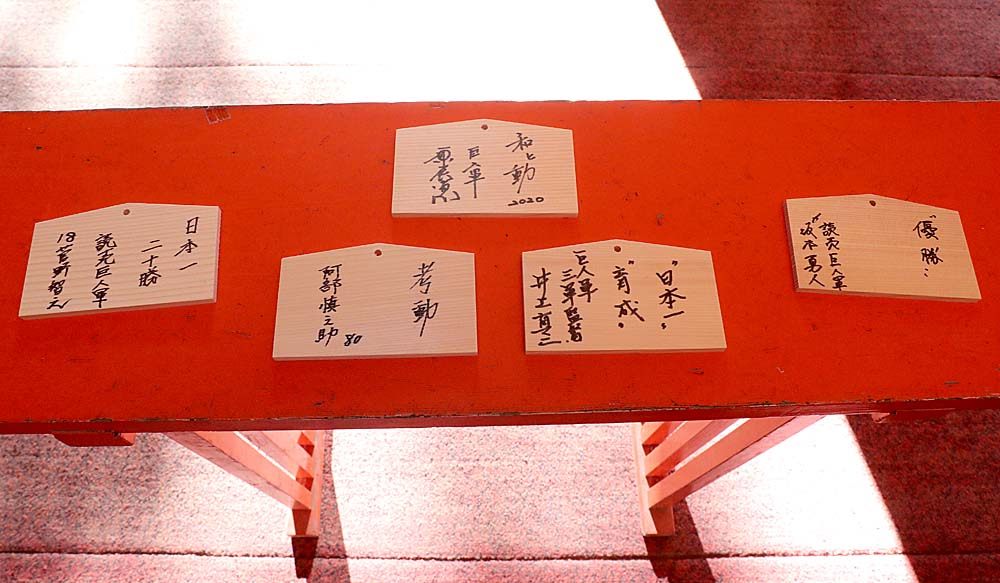 和と動
2020
巨軍
原辰徳
日本一
二十勝
読売巨人軍
18 菅野智之
考動
阿部慎之助
80
"日本一"
"育成"
巨人軍
三軍監督
井上真二
"優勝"
読売巨人軍
坂本勇人